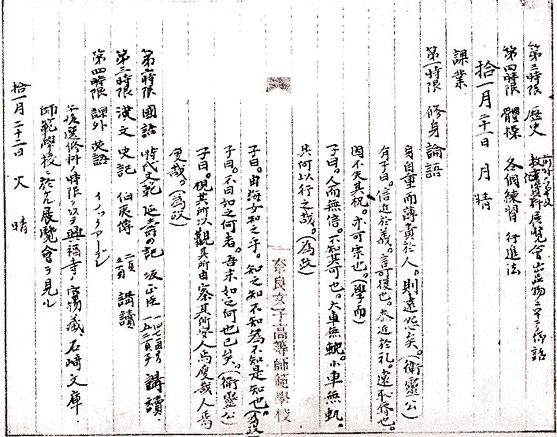 第三時限 歴史 教授資料展覧会出品物ニツキテ御話
第四時限 體操 各個練習 行進法
拾一月二十一日 月 晴
課業
第一時限 修身 論語
躬自重而薄責於人。則遠怨矣。(衛靈公)
有子曰。信近於義。言可復也。恭近於礼。遠恥辱也。
因不失其親。亦可宗也。(學而)
子曰。人而無信。不知其可也。大車無輗。小車無軏。
其何以行之哉。(為政)
子曰。由誨女知之乎。知之 知 不知為不知 是知也。(為政)
子曰。不曰如之何 者。吾末如之何也已矣。(衛靈公)
子曰。視其所以 觀其所由 察其所安 人焉廋哉 人焉
廋哉。(為政)
第二時限 國語 時代文範 講讀
第三時限 漢文 史記 伯夷傳 講讀
第四時限 課外 英語
午後 選修科 時限ヲ 興福寺 宝物蔵 石崎文庫
師範學校ニ於ケル展覧会ヲ見ル
拾一月二十二日 火 晴
奈良女子高等師範學校